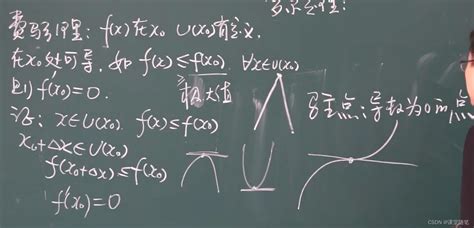 费马引理: f(x)在x₀ U(x₀)有定义,
在x₀处可导, 如 f(x)≤f(x₀). ∀x∈U(x₀)
则 f'(x₀)=0.
极大值
证: x∈U(x₀) f(x)≤f(x₀)
x₀+Δx∈U(x₀)
f(x₀+Δx)≤f(x₀)
f'(x₀)=0
驻点: 导数为0的点
CSDN @课堂随笔